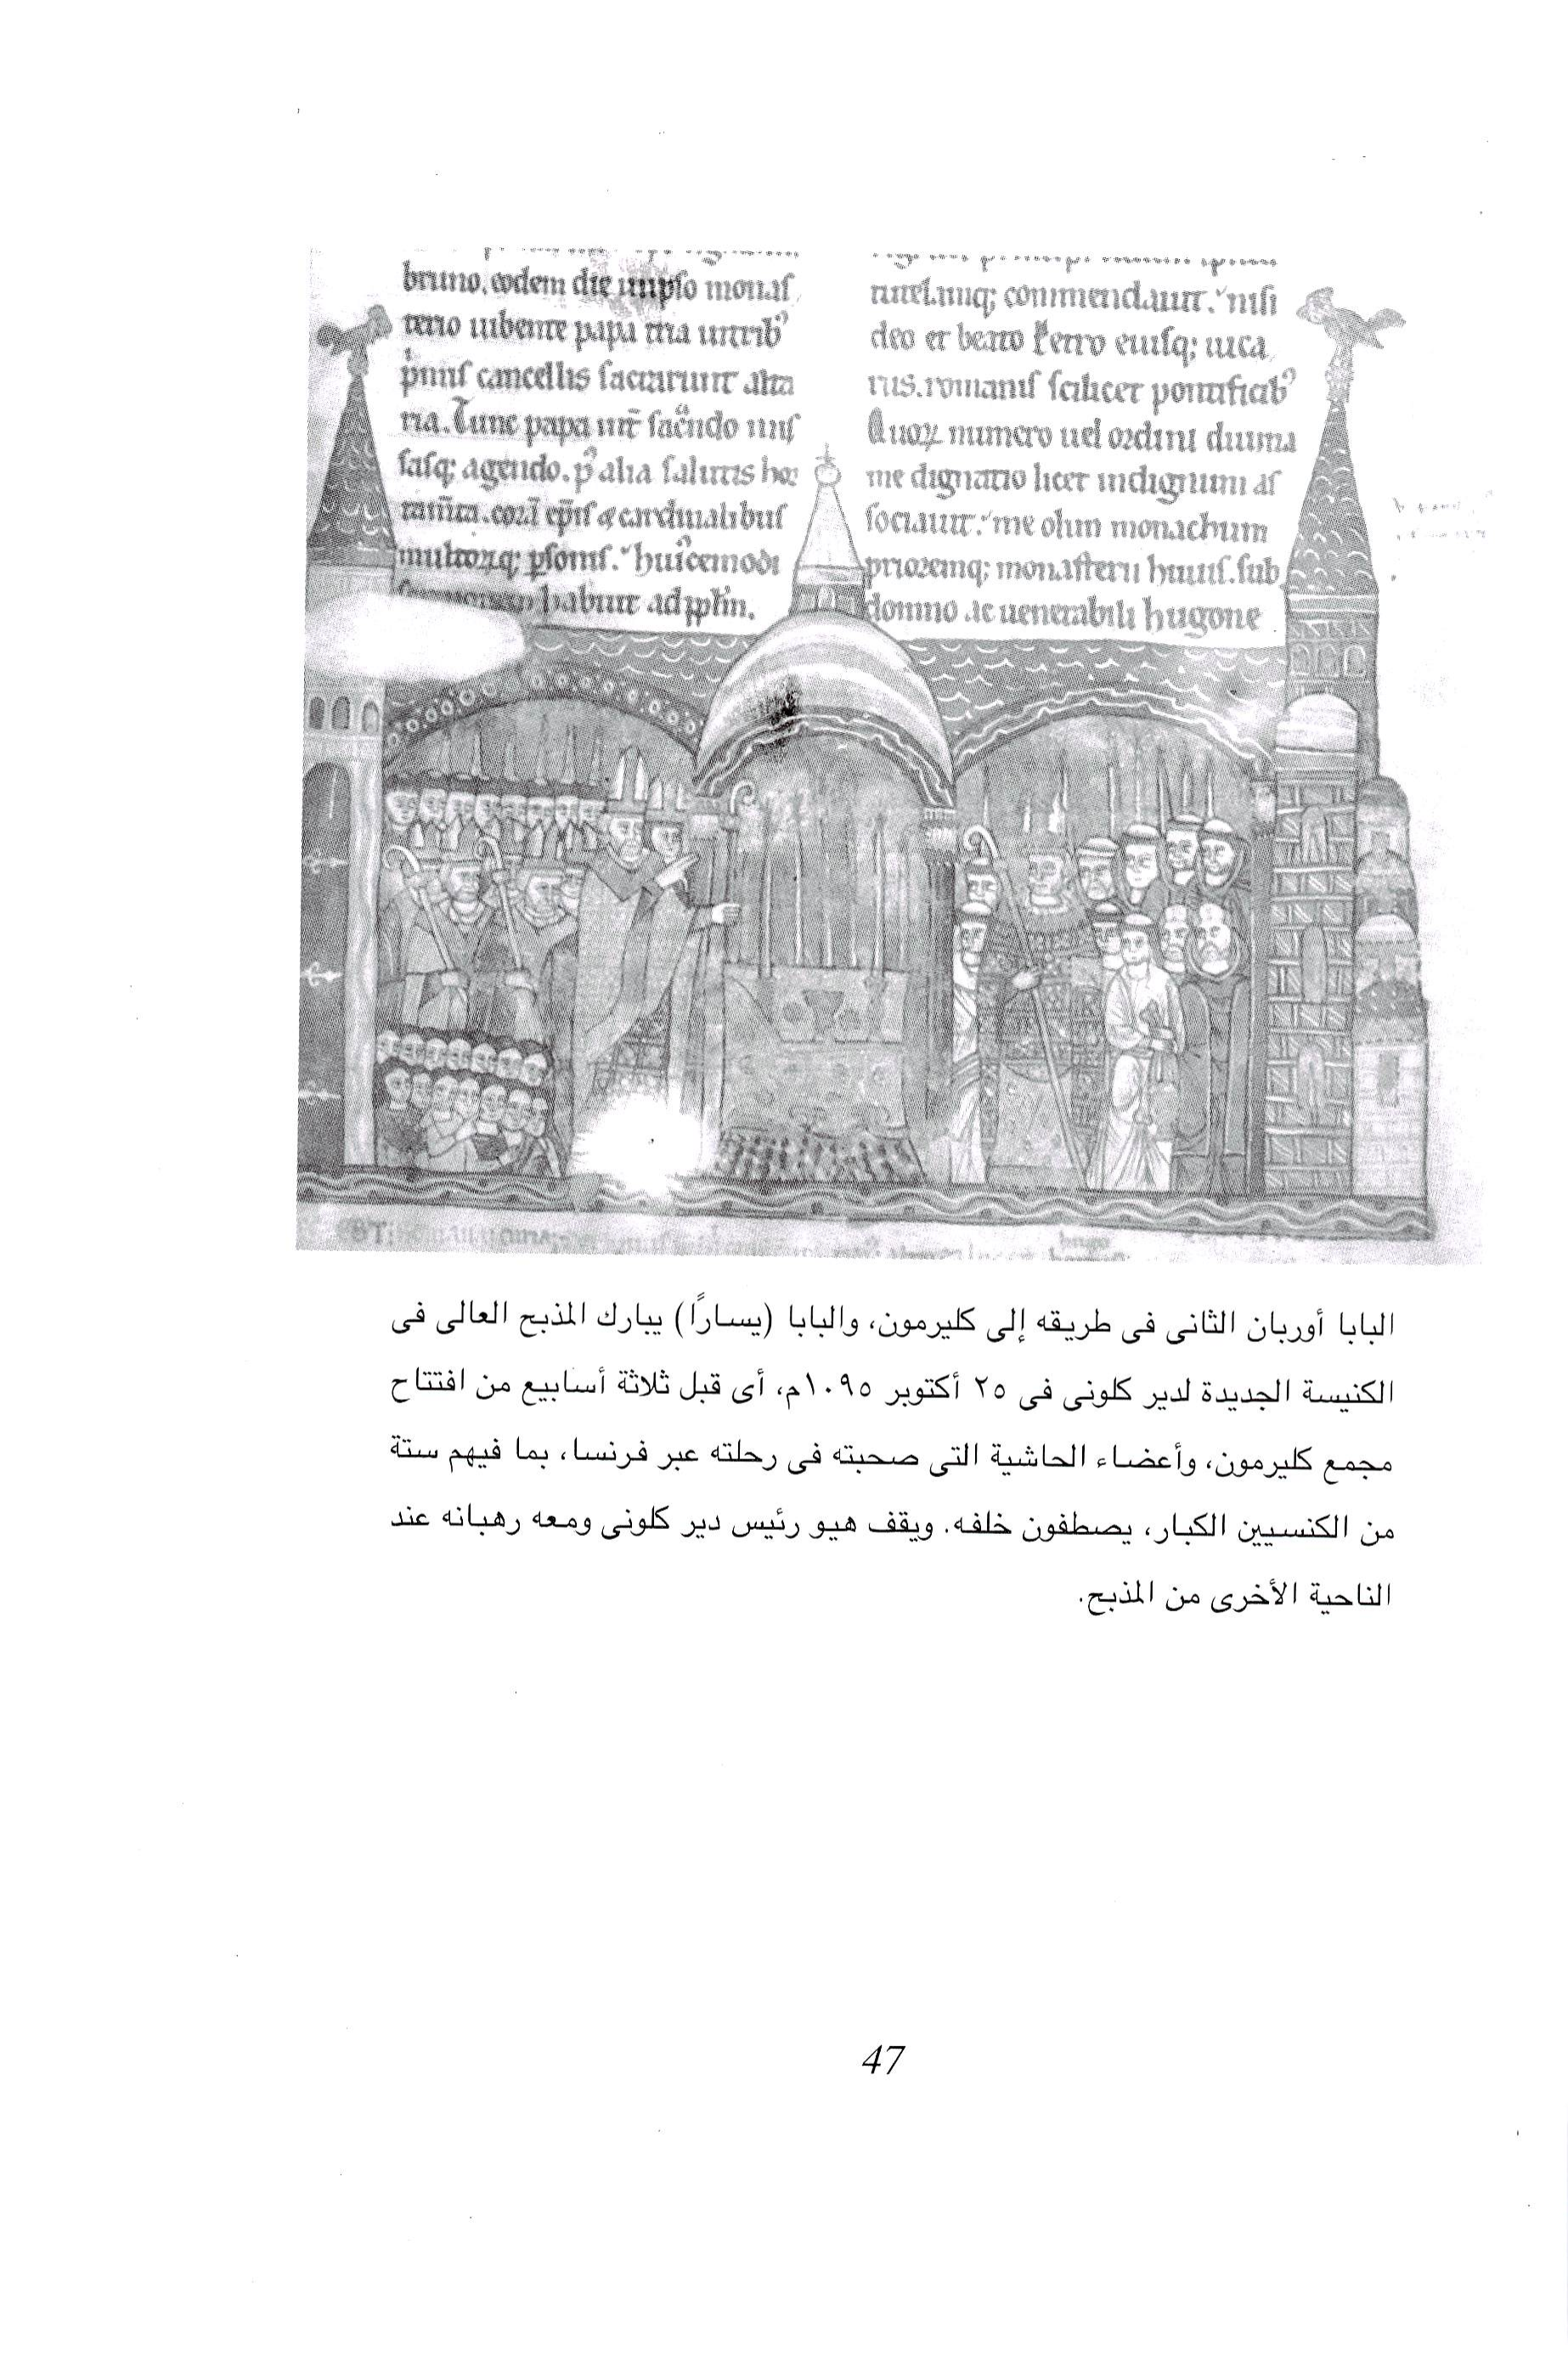 bruno. eodem die in ipso monas
terio iubente papa tria in trib⁹
pⁱmis cancellis sacrarunt alta
ria. Tunc papa int̄ sac̄ndo mis
sasq; agendo. p⁹ alia salutis hor
tam̄ta. corā ep̄is & cardinalibus
multorūq; p̱sonis. huiᵒcemodi
habuit ad pp̄l̄m.
commendauit. nisi
deo et beato Petro eiusq; uica
riis. romanis scilicet pontificib⁹
Quoꝝ numero uel ordini diuina
me dignatio licet indignum as
sociauit. me olim monachum
prioremq; monasterii huius. sub
domno ac uenerabili hugone
البابا أوربان الثانى فى طريقه إلى كليرمون، والبابا (يسارًا) يبارك المذبح العالى فى
الكنيسة الجديدة لدير كلونى فى ٢٥ أكتوبر ١٠٩٥م، أى قبل ثلاثة أسابيع من افتتاح
مجمع كليرمون، وأعضاء الحاشية التى صحبته فى رحلته عبر فرنسا، بما فيهم ستة
من الكنسيين الكبار، يصطفون خلفه. ويقف هيو رئيس دير كلونى ومعه رهبانه عند
الناحية الأخرى من المذبح.
47